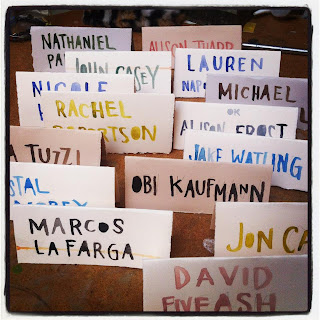 NATHANIEL
PA
ALISON THARP
JOHN CASEY
LAUREN
NAP
NICOLE
MICHAEL
OR
RACHEL
ROBERTSON
ALISON FROST
JAKE WATLING
A TUZZI
STAL
OBI KAUFMANN
MARCOS
LA FARGA
JON CA
DAVID
FIVEASH